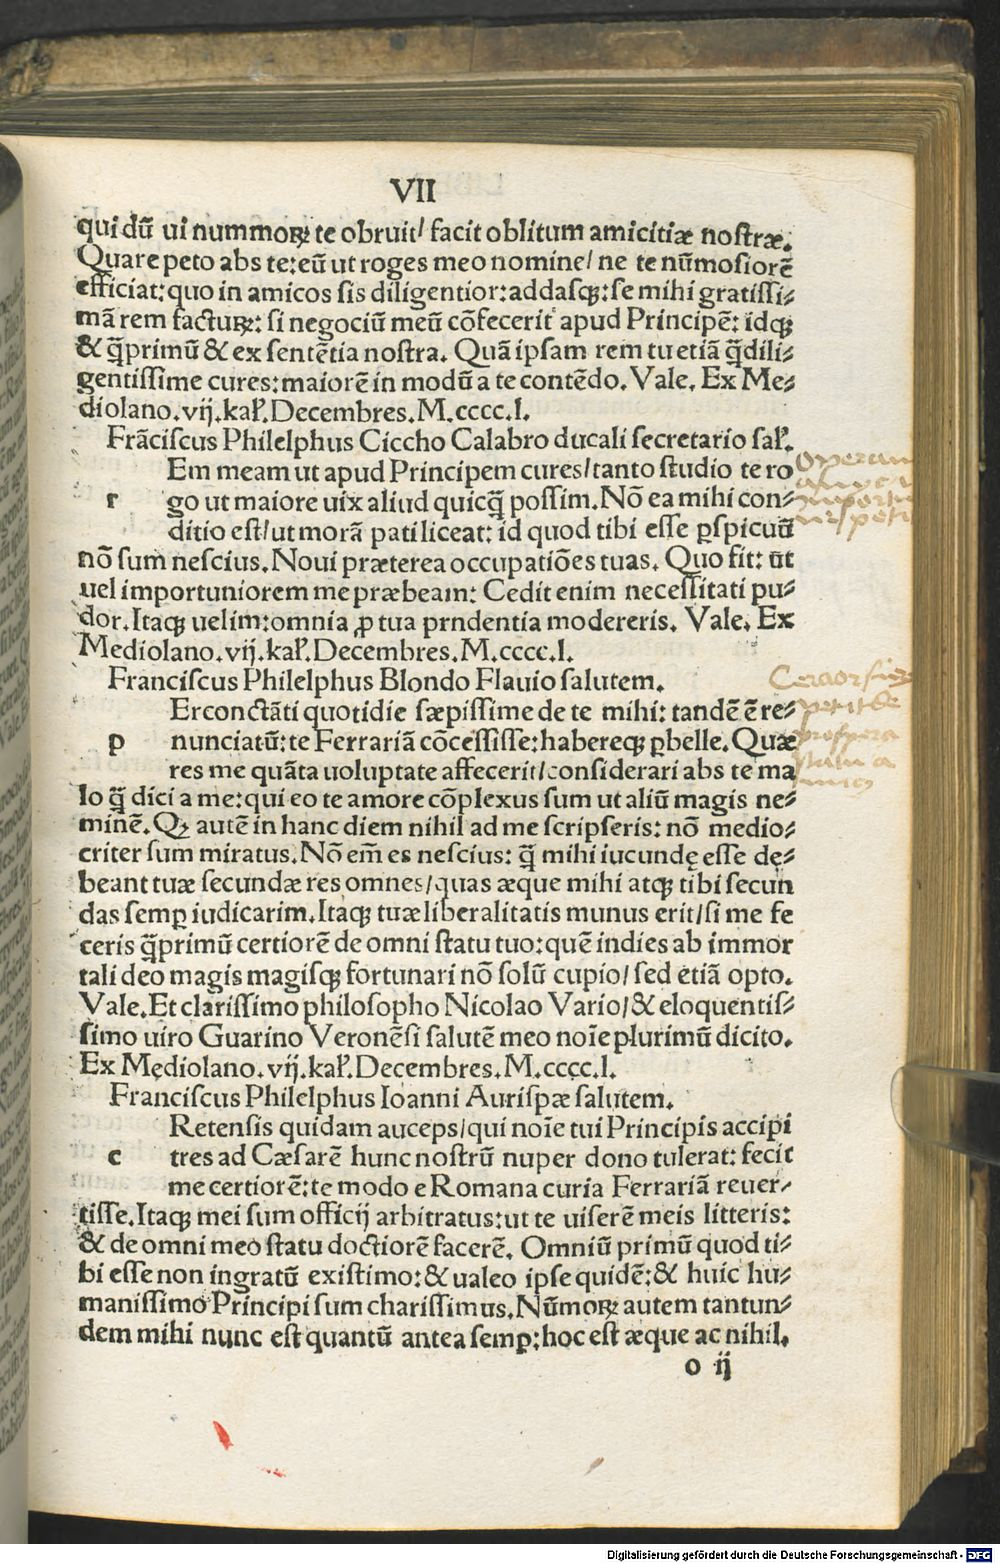 VII
qui dū ui nummoꝝ te obruit/ facit oblitum amicitiæ nostræ.
Quare peto abs te: eū ut roges meo nomine/ ne te nūmosiorē
efficiat: quo in amicos sis diligentior: addasqꝫ: se mihi gratissi⸗
mā rem factuꝝ: si negociū meū cōfecerit apud Principē: idqꝫ
& q̄primū & ex sentētia nostra. Quā ipsam rem tu etiā q̄dili⸗
gentissime cures: maiorē in modū a te contēdo. Vale. Ex Me⸗
diolano. vij. kal'. Decembres. M.cccc.l.
Frāciscus Philelphus Ciccho Calabro ducali secretario sal'.
Em meam ut apud Principem cures/ tanto studio te ro
r go ut maiore uix aliud quicq̄ possim. Nō ea mihi con⸗
ditio est/ ut morā pati liceat: id quod tibi esse ꝑspicuū
nō sum nescius. Noui præterea occupatiōes tuas. Quo fit: ut
uel importuniorem me præbeam: Cedit enim necessitati pu⸗
dor. Itaqꝫ uelim: omnia ꝓ tua prndentia modereris. Vale. Ex
Mediolano. vij. kal'. Decembres. M.cccc.l.
Franciscus Philelphus Blondo Flauio salutem.
Erconctāti quotidie sæpissime de te mihi: tandē ē re⸗
p nunciatū: te Ferrariā cōcessisse: habereqꝫ ꝑbelle. Quæ
res me quāta uoluptate affecerit/ considerari abs te ma
lo q̄ dici a me: qui eo te amore cōplexus sum ut aliū magis ne⸗
minē. Qꝫ autē in hanc diem nihil ad me scripseris: nō medio⸗
criter sum miratus. Nō em̄ es nescius: q̄ mihi iucundę esse dę⸗
beant tuæ secundæ res omnes/ quas æque mihi atqꝫ tibi secun
das semꝑ iudicarim. Itaqꝫ tuæ liberalitatis munus erit/ si me fe
ceris q̄primū certiorē de omni statu tuo: quē indies ab immor
tali deo magis magisqꝫ fortunari nō solū cupio/ sed etiā opto.
Vale. Et clarissimo philosopho Nicolao Vario/ & eloquentis⸗
simo uiro Guarino Veronēsi salutē meo noīe plurimū dicito.
Ex Mędiolano. vij. kal'. Decembres. M.cccc.l.
Franciscus Philelphus Ioanni Aurispæ salutem.
Retensis quidam auceps/ qui noīe tui Principis accipi
c tres ad Cæsarē hunc nostrū nuper dono tulerat: fecit
me certiorē: te modo e Romana curia Ferrariā reuer⸗
tisse. Itaqꝫ mei sum officij arbitratus: ut te uiserē meis litteris:
& de omni meo statu doctiorē facerē. Omniū primū quod ti⸗
bi esse non ingratū existimo: & ualeo ipse quidē: & huic hu⸗
manissimo Principi sum charissimus. Nūmoꝝ autem tantun⸗
dem mihi nunc est quantū antea semꝑ: hoc est æque ac nihil.
o ij
Operam
petit de
prospera
statu a
Digitalisierung gefördert durch die Deutsche Forschungsgemeinschaft - DFG